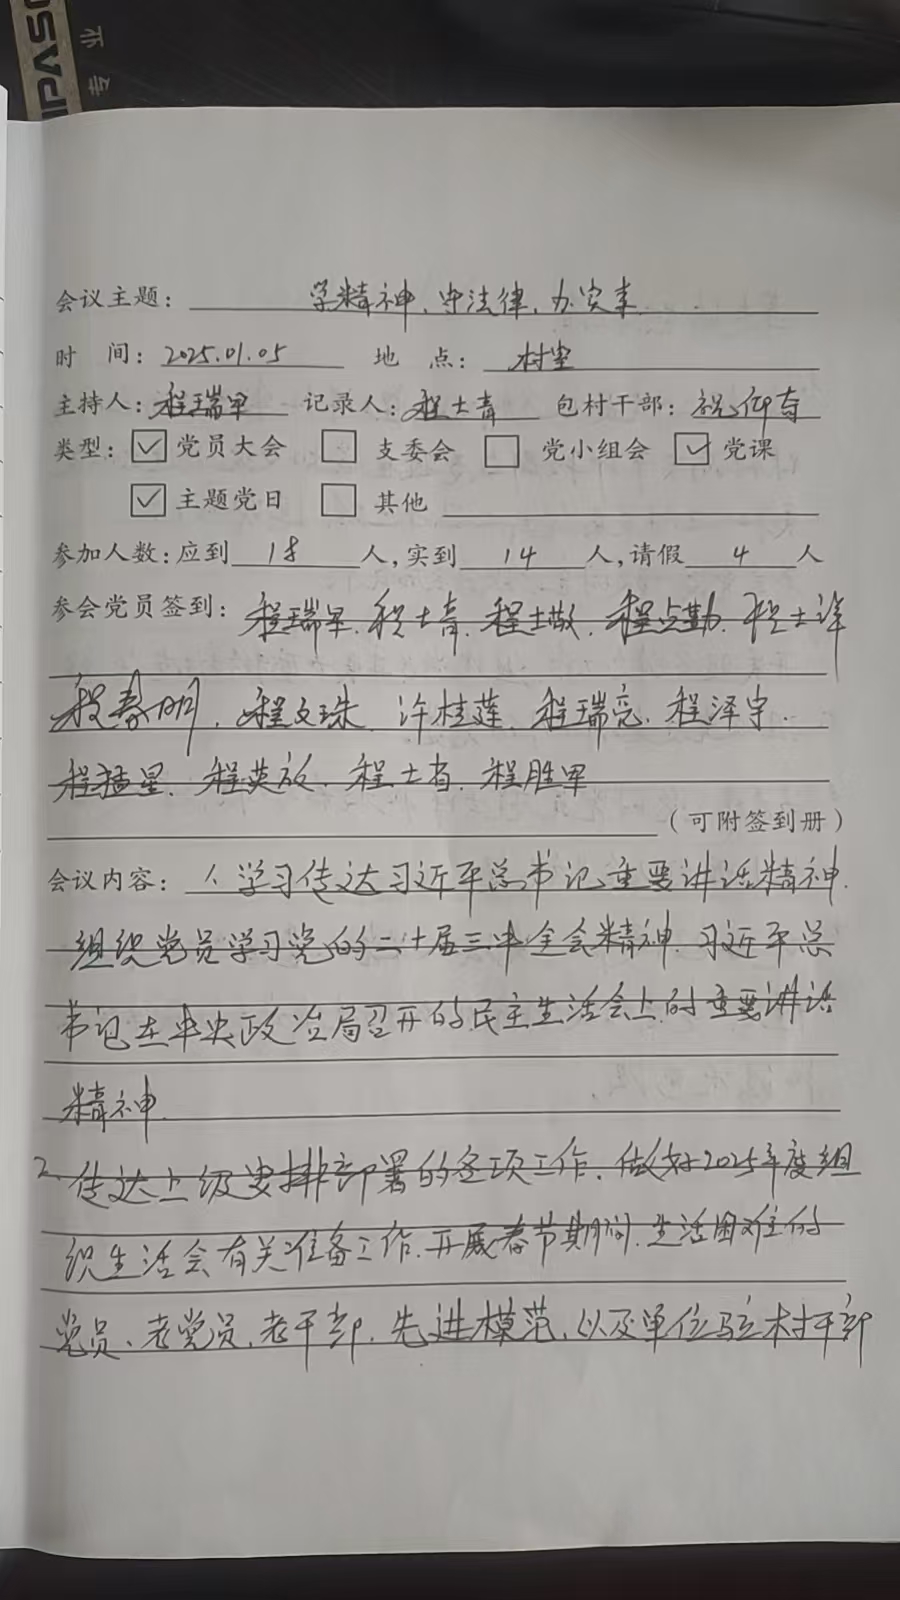 专业
会议主题: 学精神、守法律、办实事
时 间: 2025.01.05 地 点: 村室
主持人: 程瑞军 记录人: 程士青 包村干部: 祝
类型: ☑ 党员大会 □ 支委会 □ 党小组会 ☑ 党课
☑ 主题党日 □ 其他
参加人数: 应到 18 人, 实到 14 人, 请假 4 人
参会党员签到: 程瑞军、程士青、程士敬、程占勤、程士详
程春明、程文珠、许桂莲、程瑞亮、程泽宇、
程猛星、程英放、程士省、程胜军
(可附签到册)
会议内容: 1、学习传达习近平总书记重要讲话精神.
组织党员学习党的二十届三中全会精神.习近平总
书记在中央政治局召开的民主生活会上的重要讲话
精神.
2. 传达上级安排部署的各项工作.做好2025年度组
织生活会有关准备工作.开展春节期间.生活困难的
党员、老党员、老干部.先进模范.以及单位驻村干部